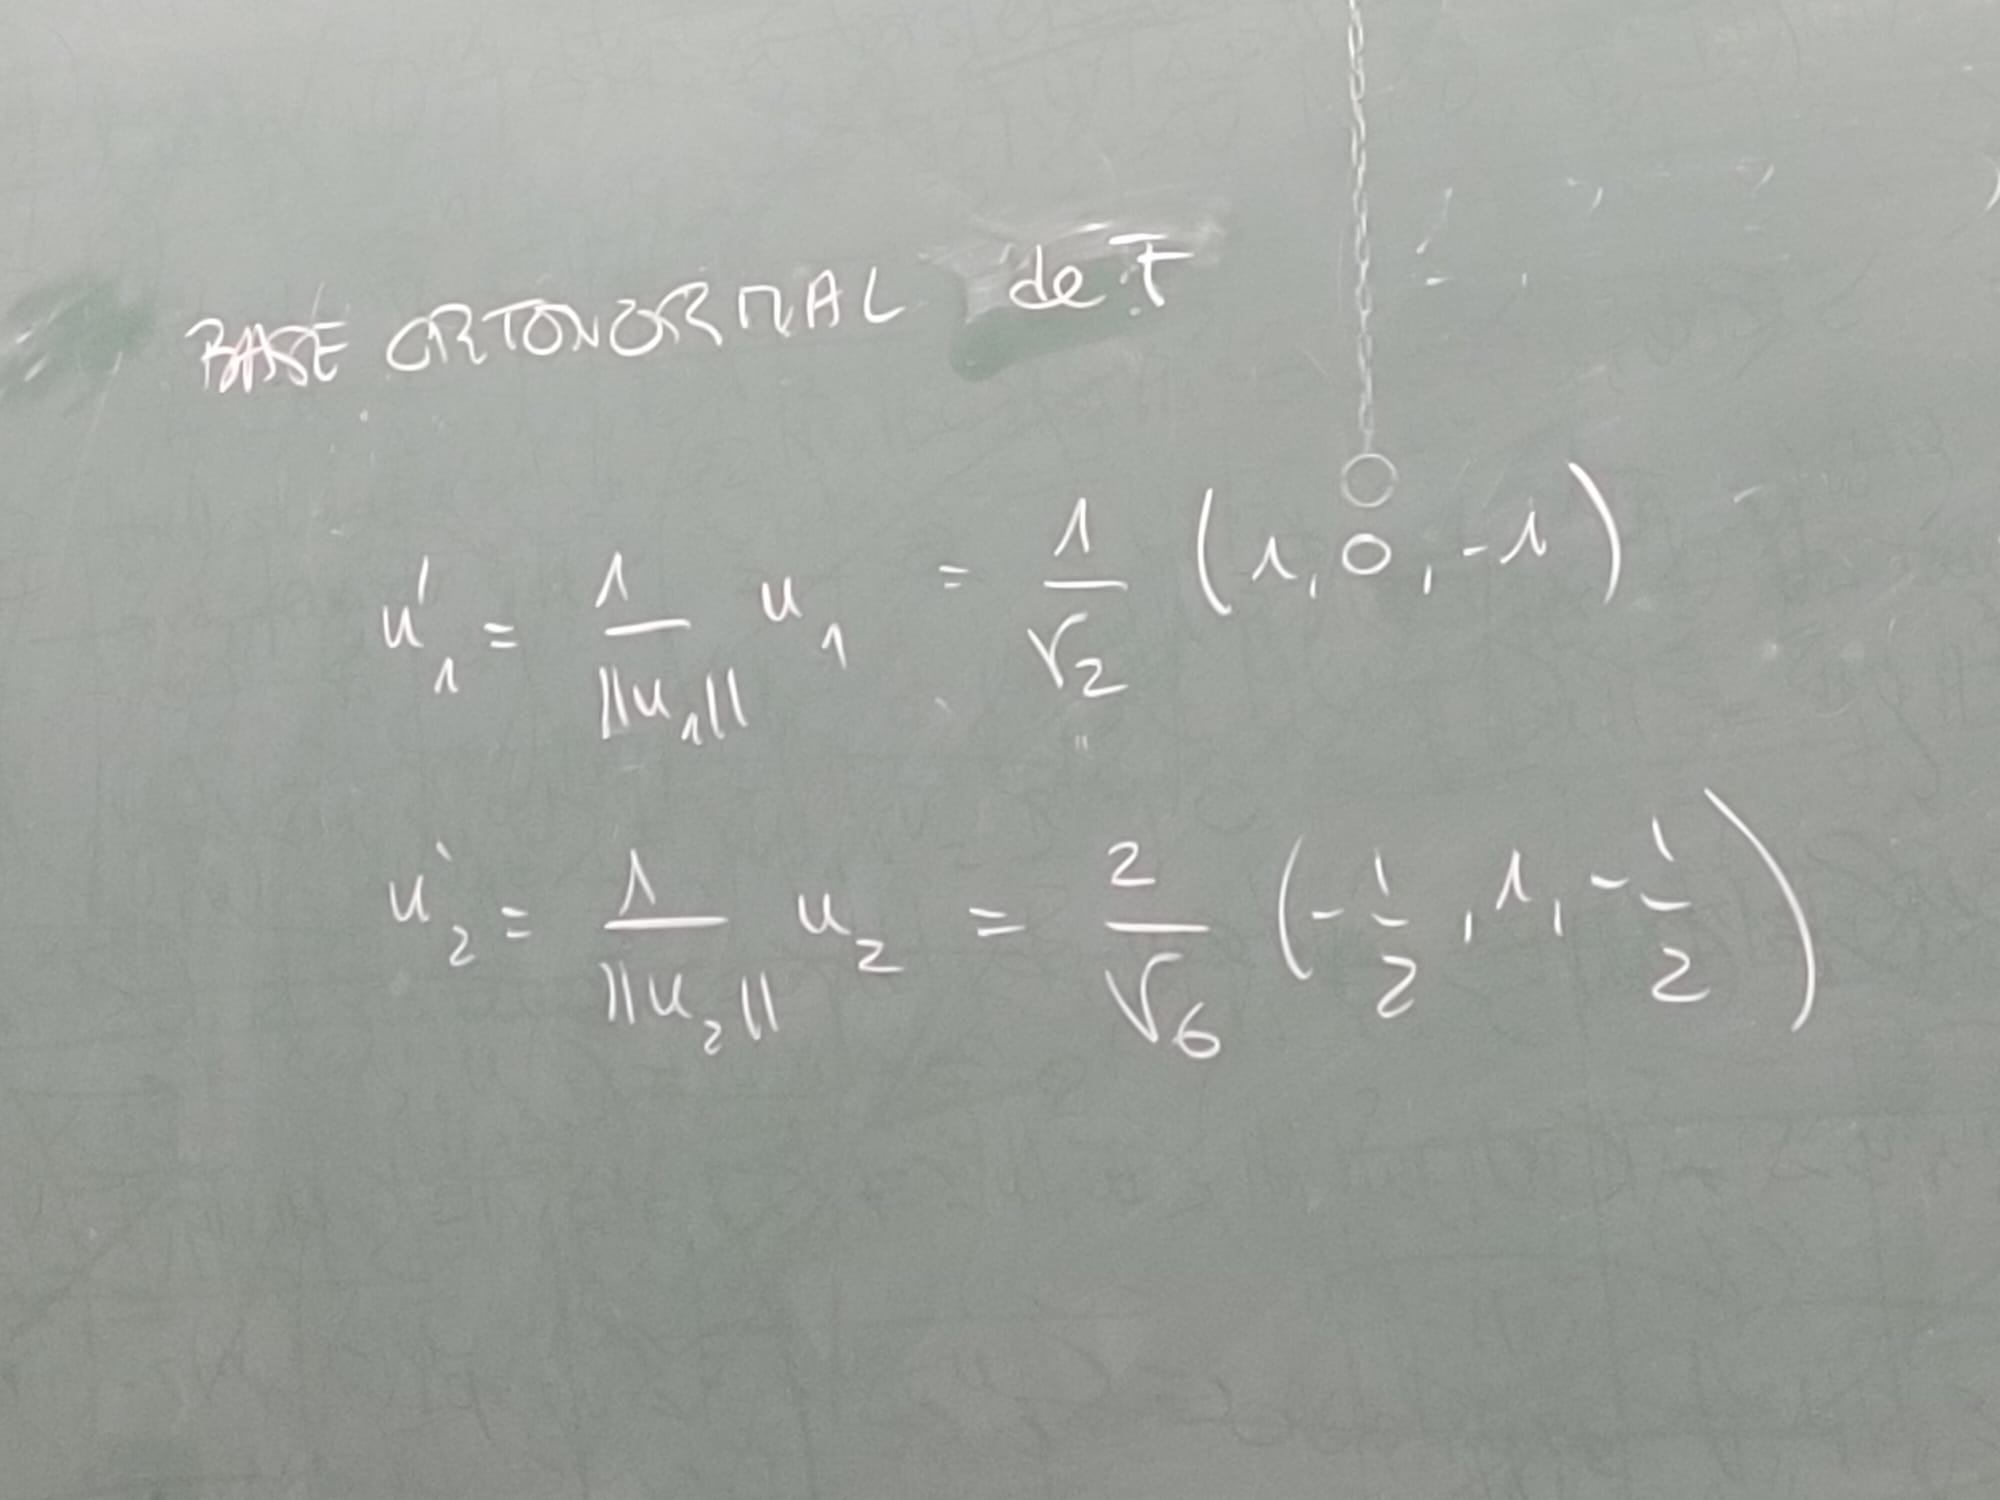 BASE ORTONORMAL de T
u'₁ = 1/||u₁|| u₁ = 1/√2 (1, 0, -1)
u'₂ = 1/||u₂|| u₂ = 2/√6 (-1/2, 1, -1/2)